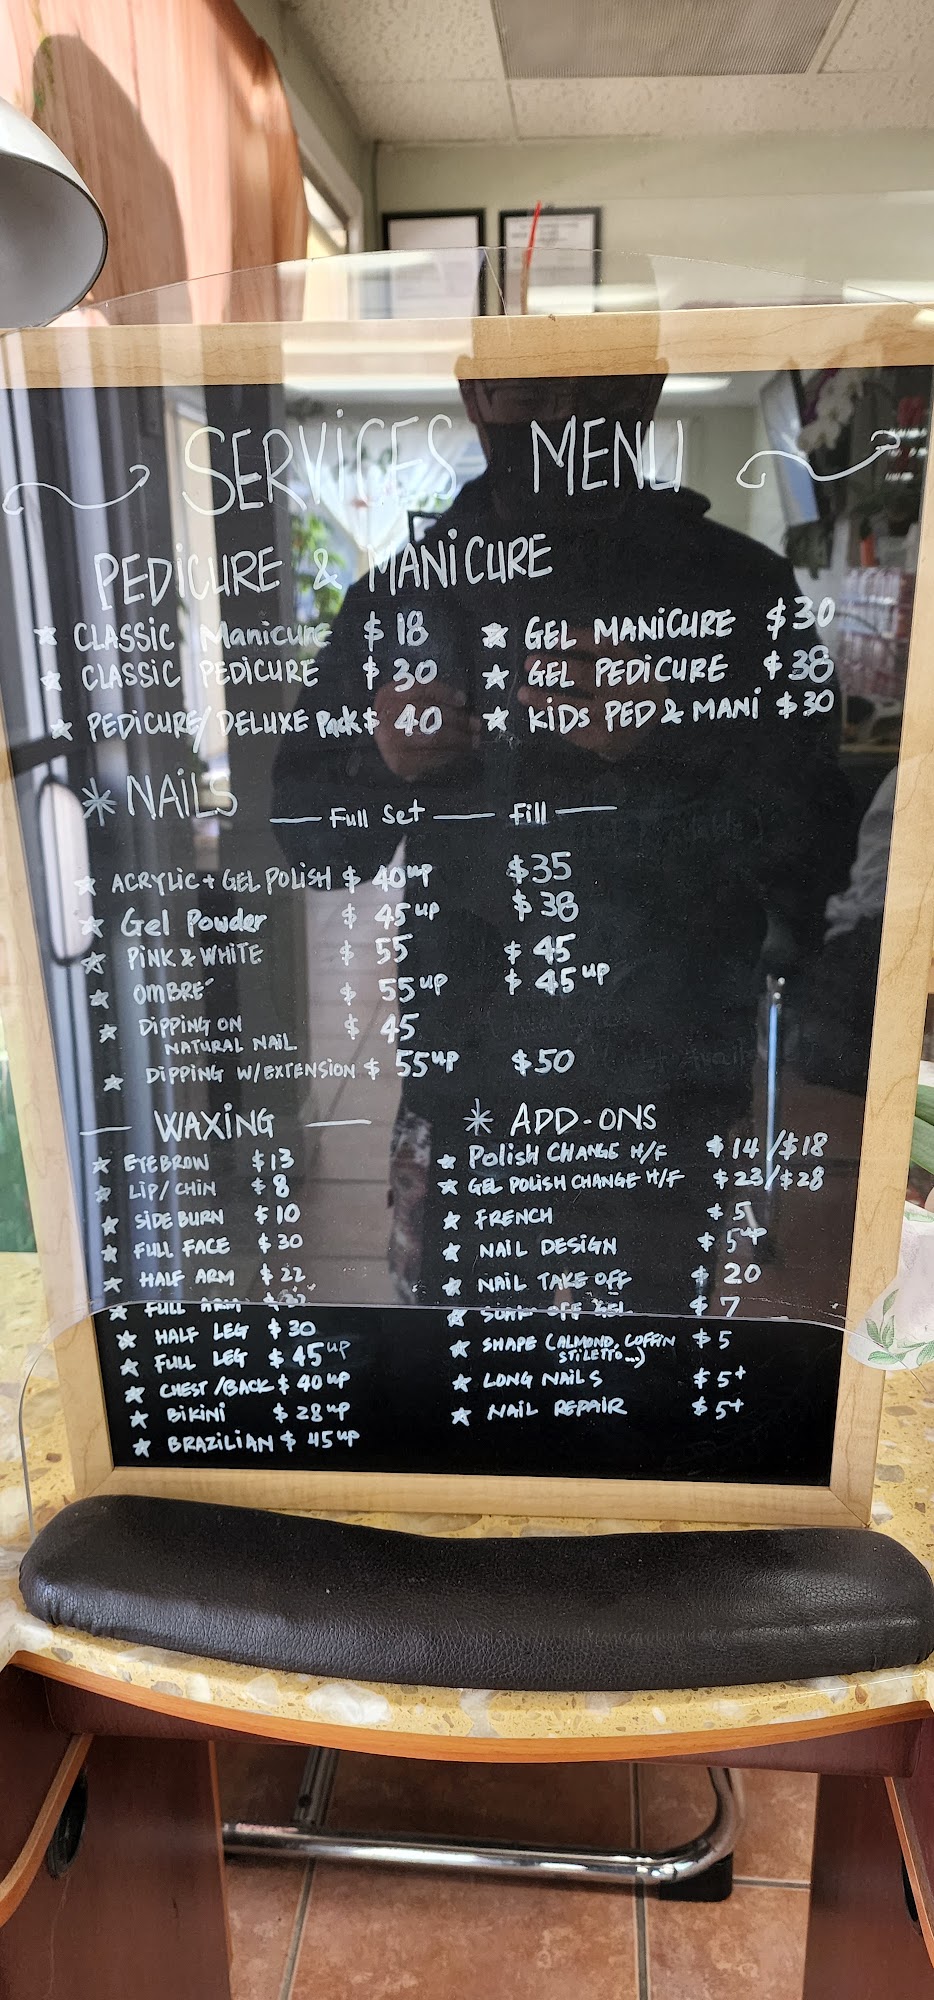 SERVICES MENU
PEDICURE & MANICURE
CLASSIC Manicure $18
CLASSIC PEDICURE $30
PEDICURE/DELUXE Pack $40
GEL MANICURE $30
GEL PEDICURE $38
KIDS PED & MANI $30
* NAILS
Full Set Fill
ACRYLIC + GEL POLISH $40up $35
Gel Powder $45up $38
PINK & WHITE $55 $45
OMBRE' $55up $45up
DIPPING ON $45
NATURAL NAIL
DIPPING W/EXTENSION $55up $50
WAXING
EYEBROW $13
LIP/CHIN $8
SIDE BURN $10
FULL FACE $30
HALF ARM $22
FULL ARM
HALF LEG $30
FULL LEG $45up
CHEST/BACK $40up
BIKINI $28up
BRAZILIAN $45up
* ADD-ONS
Polish CHANGE H/F $14/$18
GEL POLISH CHANGE H/F $23/$28
FRENCH $5
NAIL DESIGN $5up
NAIL TAKE OFF $20
SOAK OFF GEL $7
SHAPE (ALMOND, COFFIN $5
STILETTO...)
LONG NAILS $5+
NAIL REPAIR $5+